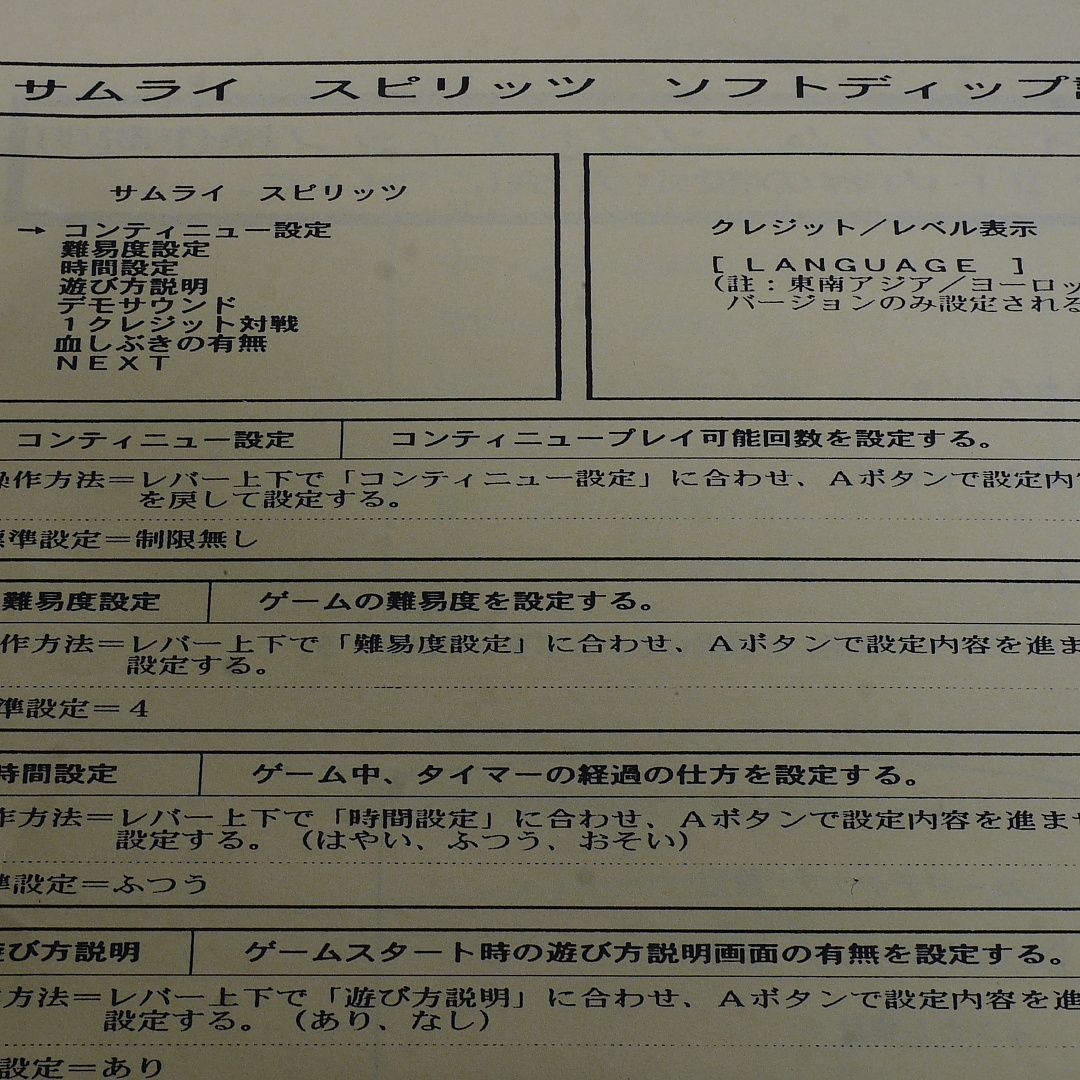 サムライ　スピリッツ　ソフトディップ
サムライ　スピリッツ
→ コンティニュー設定
難易度設定
時間設定
遊び方説明
デモサウンド
１クレジット対戦
血しぶきの有無
ＮＥＸＴ
クレジット／レベル表示
［ ＬＡＮＧＵＡＧＥ ］
（註：東南アジア／ヨーロッ
バージョンのみ設定される
コンティニュー設定　コンティニュープレイ可能回数を設定する。
操作方法＝レバー上下で「コンティニュー設定」に合わせ、Ａボタンで設定内
を戻して設定する。
標準設定＝制限無し
難易度設定　ゲームの難易度を設定する。
作方法＝レバー上下で「難易度設定」に合わせ、Ａボタンで設定内容を進ま
設定する。
準設定＝４
時間設定　ゲーム中、タイマーの経過の仕方を設定する。
作方法＝レバー上下で「時間設定」に合わせ、Ａボタンで設定内容を進ませ
設定する。（はやい、ふつう、おそい）
準設定＝ふつう
遊び方説明　ゲームスタート時の遊び方説明画面の有無を設定する。
方法＝レバー上下で「遊び方説明」に合わせ、Ａボタンで設定内容を進
設定する。（あり、なし）
設定＝あり